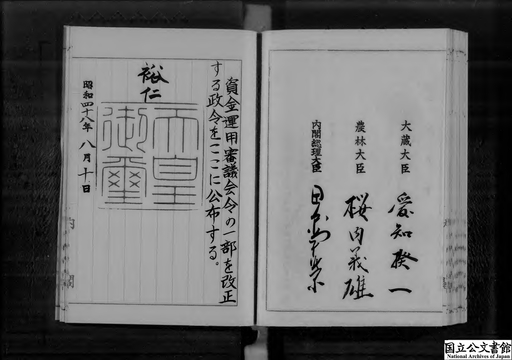 資金運用審議会令の一部を改正
する政令をここに公布する。
裕仁
天皇
御璽
昭和四十八年 八月 十日
内閣
大蔵大臣 愛知揆一
農林大臣 桜内義雄
内閣総理大臣 田中角榮
国立公文書館
National Archives of Japan